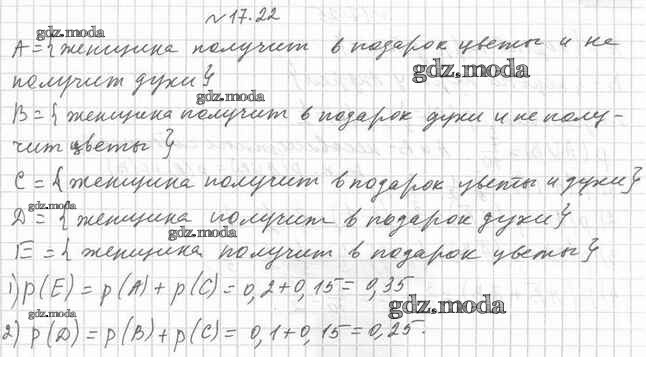 №17.22
gdz.moda
A = { женщина получит в подарок цветы и не
gdz.moda
получит духи }
gdz.moda
B = { женщина получит в подарок духи и не полу-
чит цветы }
C = { женщина получит в подарок цветы и духи }
gdz.moda
D = { женщина получит в подарок духи }
gdz.moda
E = { женщина получит в подарок цветы }
1) p(E) = p(A) + p(C) = 0,2 + 0,15 = 0,35
gdz.moda
gdz.moda
2) p(D) = p(B) + p(C) = 0,1 + 0,15 = 0,25.